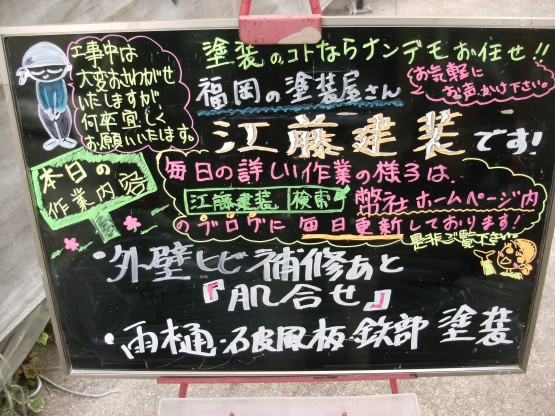 工事中は
大変お さわがせ
いたしますが、
何卒宜しく
お願いいたします。
塗装のコトならナンデモお任せ!!
福岡の塗装屋さん
お気軽に
お声かけ下さい。
江藤建装です!
本日の
作業内容
毎日の詳しい作業の様子は、
江藤建装 検索 弊社ホームページ内
のブログに毎日更新しております!
是非ご覧下さい。
・外壁ヒビ補修あと
『肌合せ』
・雨樋・破風板・鉄部 塗装